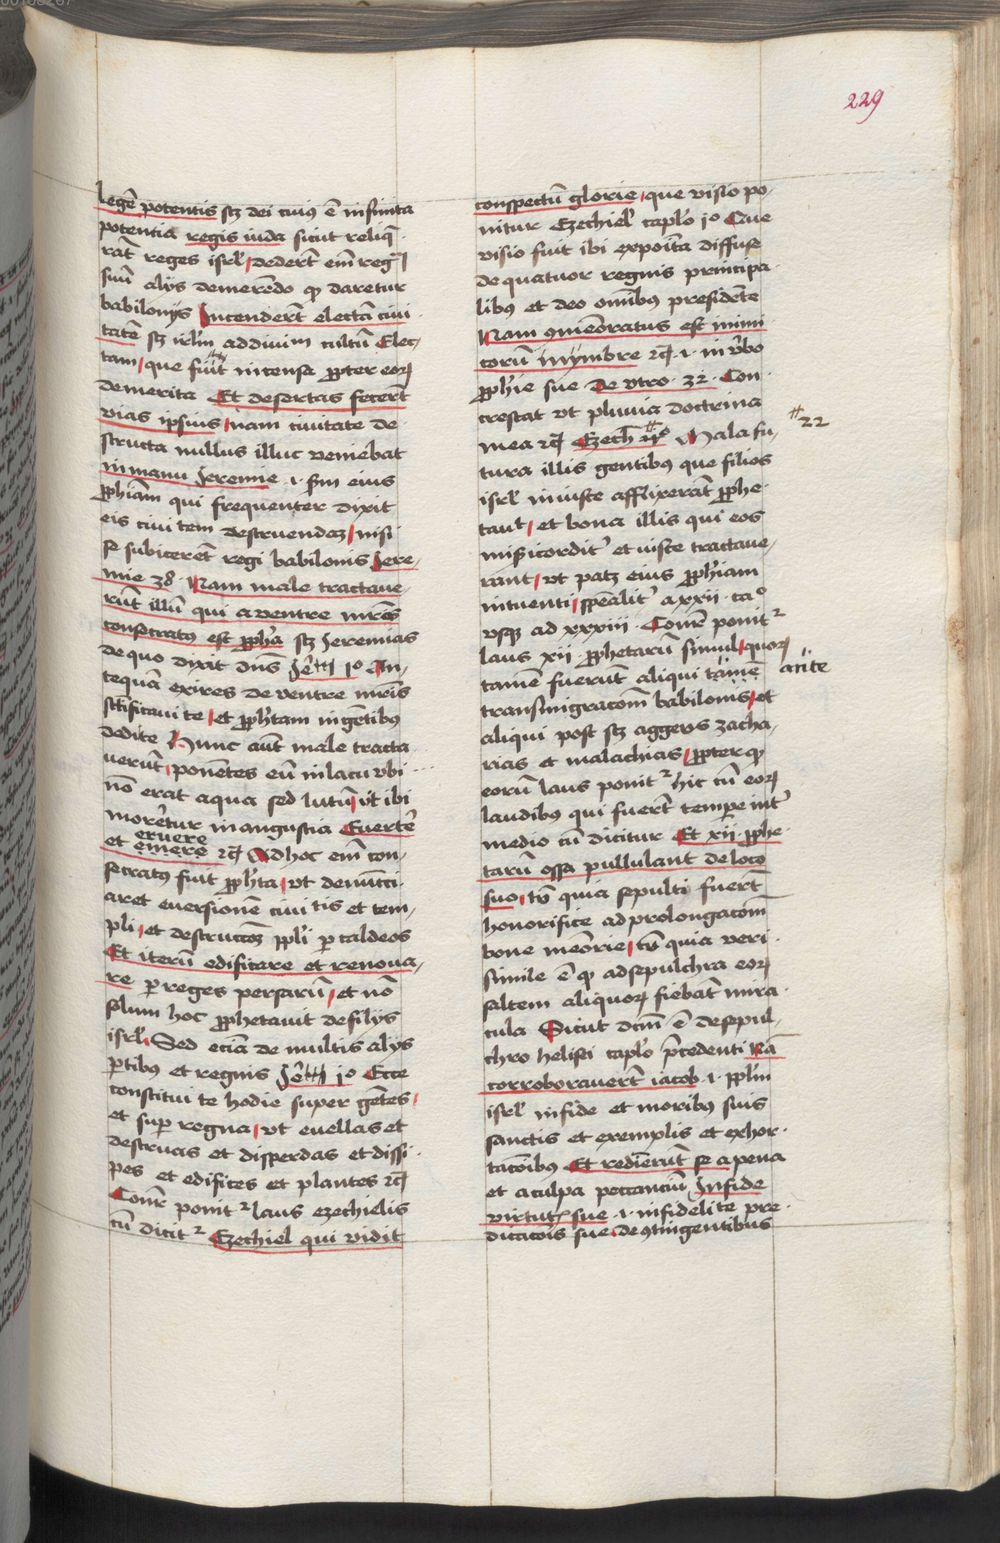 229
legē potentis sꝫ dei cuiꝰ ē infinita
potentia regis iuda sicut reliq̄
rāt reges isrl' dederūt em̄ regū
suū alijs demerēdo qꝫ daretur
babilonijs Incenderūt electā ciui
tatē sꝫ irl'm ad diuinū cultū Elec
tam que fuit incensa ꝓpter eoꝝ
demerita Et desertas fecerūt
vias ipsius nam ciuitate de
structa nullus illuc veniebat
in manu Jeremie .i. scdm̄ eius
ꝓphiam qui frequenter dixit
eis ciuitem destruendaꝫ nisi
se subicerēt regi babilonis Jere
mie 38. Nam male tractaue
rūt illū qui a ventre mr̄is
consecratꝰ est ꝓph̄a sꝫ Jeremias
de quo dixit dn̄s 1º An
tequā exires de ventre mr̄is
sc̄tificaui te et ꝓph̄tam in gētibꝰ
dedi te Hunc aūt male tracta
uerūt ponētes eū in lacu vbi
nō erat aqua sed lutū vt ibi
morēretur in angustia Euertē
eruere
et emere ⁊cꝫ Ad hoc em̄ con
secratꝰ fuit ꝓph̄ta vt denūcci
aret euersionē ciuitis et tem
pli et destructōꝫ ppl'i per caldeos
Et iterū edificare et renoua
re per reges persarū et nō
solum hoc ꝓphetauit de filijs
isrl' Sed eciā de multis alijs
ꝑtibꝰ et regnis 1º Ecce
constitui te hodie super gētes
et suꝑ regna vt euellas et
destruas et disperdas et dissi
pes et edifices et plantes ⁊cꝫ
Conr̄ ponitꝰ laus ezechielis
cū dicitꝰ Ezechiel qui vidit
conspectū glorie que visio po
nitur Ezechiel' capl'o 1º Que
visio fuit ibi exposita diffuse
de quatuor regnis principa
libꝰ et deo om̄ibꝰ presidēte
Nam ꝯmēoratus est inimi
corū in ymbre ⁊cꝫ .i. in v̄bo
ꝓph̄ie sue De vtro. 32. Con
crescat vt pluuia doctrina
mea ⁊cꝫ Ezech Mala fu
22
tura illis gentibꝰ que filios
isrl' iniuste afflixerāt ꝓphe
taut et bona illis qui eos
misericorditer et iuste tractaue
rant vt patꝫ eius ꝓph̄iam
intuenti sp̄ealit' a xxii. caº
vsqꝫ ad xxxiii. Conr̄ ponitꝰ
laus xii. ꝓphetarū simul quoꝝ
tamē fuerūt aliqui tamē
ante
transmigracōm babilonis et
aliqui post sꝫ aggeus zacha
rias et malachias ꝓpter qꝫ
eorū laus ponitꝰ hic cū eoꝝ
laudibꝰ qui fuerūt tempore int'
medio cū dicitur Et xii. ꝓphe
tarū ossa pullulant de loco
suo tū quia sepulti fuerūt
honorifice ad prolongacōm
bone mēorie tū quia veri
simile ē qꝫ ad sepulchra eoꝝ
saltem aliquoꝝ fiebāt mira
cula Sicut dc̄m ē de sepul
chro helisei capl'o p̄cedenti Nā
corroborauerūt iacob .i. ppl'm
isrl' in fide et moribꝰ suis
sanctis et exemplis et exhor
tacōibꝰ Et rediērūt se a pena
et a culpa peccanciū In fide
virtutꝭ sue .i. in fidelitate pre
dicacōis sue de ꝯtingentibus